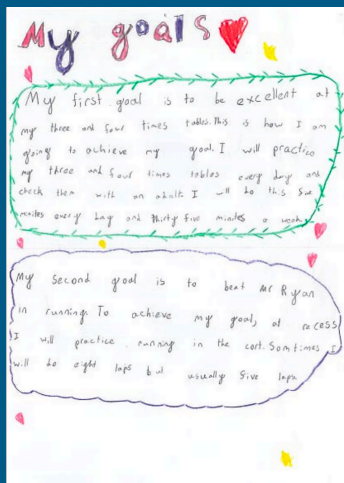 My goals
My first goal is to be excellent at
my three and four times tables. This is how I am
going to achieve my goal. I will practice
my three and four times tables every day and
check them with an adult. I will do this five
minites every day and thirty five minites a week.
My second goal is to beat Mr Ryan
in running. To achieve my goal, at recess
I will practice running in the cort. Somtimes I
will do eight laps but usually five laps.